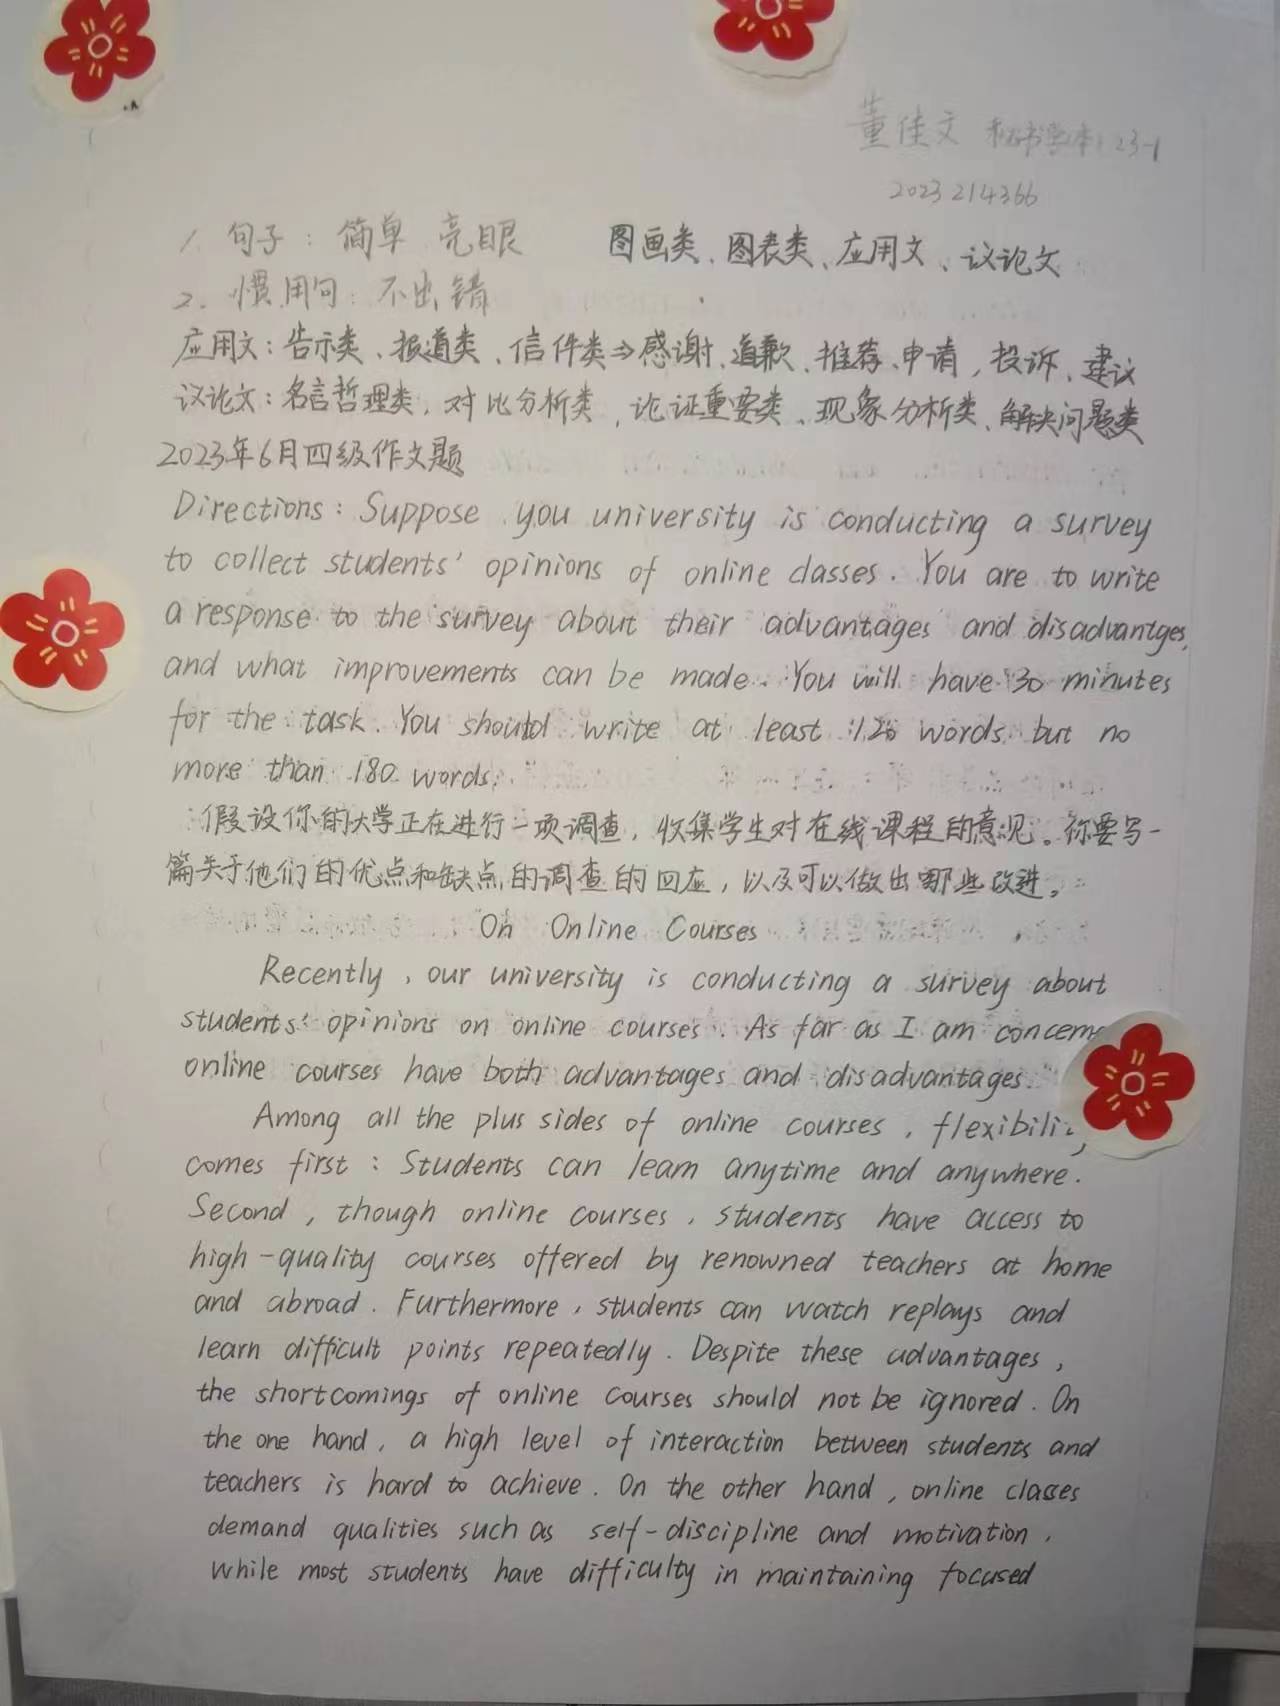 董佳文 秘书学本 23-1
2023214366
1. 句子：简单 亮眼 图画类、图表类、应用文、议论文
2. 惯用句：不出错
应用文：告示类、报道类、信件类⇒感谢、道歉、推荐、申请，投诉、建议
议论文：名言哲理类，对比分析类，论证重要类、现象分析类、解决问题类
2023年6月四级作文题
Directions: Suppose you university is conducting a survey
to collect students' opinions of online classes. You are to write
a response to the survey about their advantages and disadvantges,
and what improvements can be made. You will have 30 minutes
for the task. You should write at least 120 words but no
more than 180 words.
假设你的大学正在进行一项调查，收集学生对在线课程的意见。你要写一
篇关于他们的优点和缺点的调查的回应，以及可以做出哪些改进。
On Online Courses
Recently, our university is conducting a survey about
students' opinions on online courses. As far as I am concerne
online courses have both advantages and disadvantages.
Among all the plus sides of online courses, flexibility
comes first: Students can learn anytime and anywhere.
Second, though online courses, students have access to
high-quality courses offered by renowned teachers at home
and abroad. Furthermore, students can watch replays and
learn difficult points repeatedly. Despite these advantages,
the shortcomings of online courses should not be ignored. On
the one hand, a high level of interaction between students and
teachers is hard to achieve. On the other hand, online classes
demand qualities such as self-discipline and motivation,
while most students have difficulty in maintaining focused